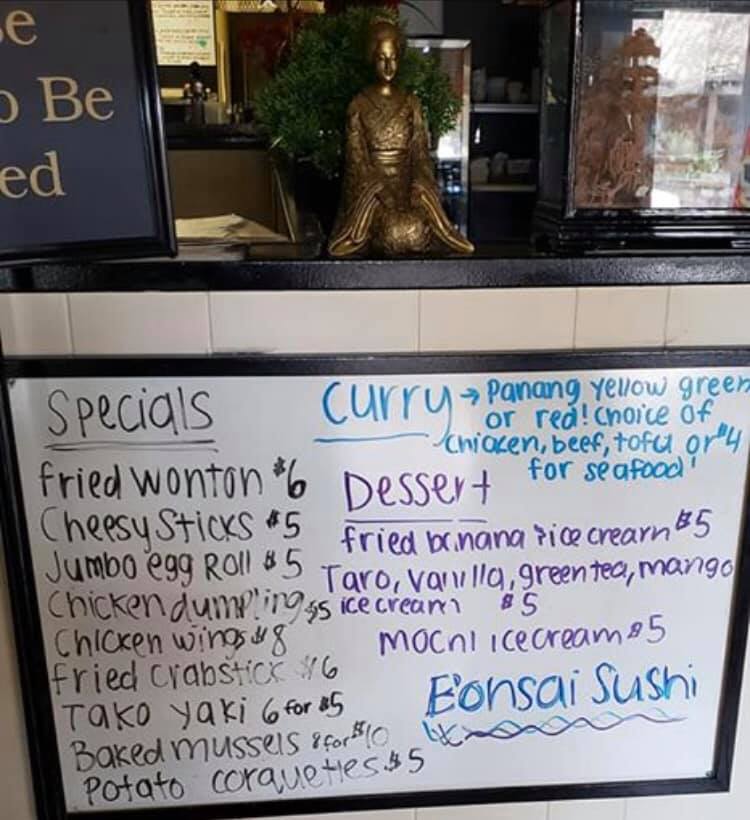 e
o Be
ed
Specials
fried wonton $6
Cheesy Sticks $5
Jumbo egg Roll $5
Chicken dumpling $5
Chicken wings $8
fried Crabstick $6
Tako yaki 6 for $5
Baked mussels 8 for $10
Potato corquettes $5
Curry → Panang yellow green
or red! Choice of
chicken, beef, tofu or $4
for seafood!
Dessert
fried banana & ice cream $5
Taro, vanilla, green tea, mango
ice cream $5
mochi ice cream $5
Bonsai Sushi